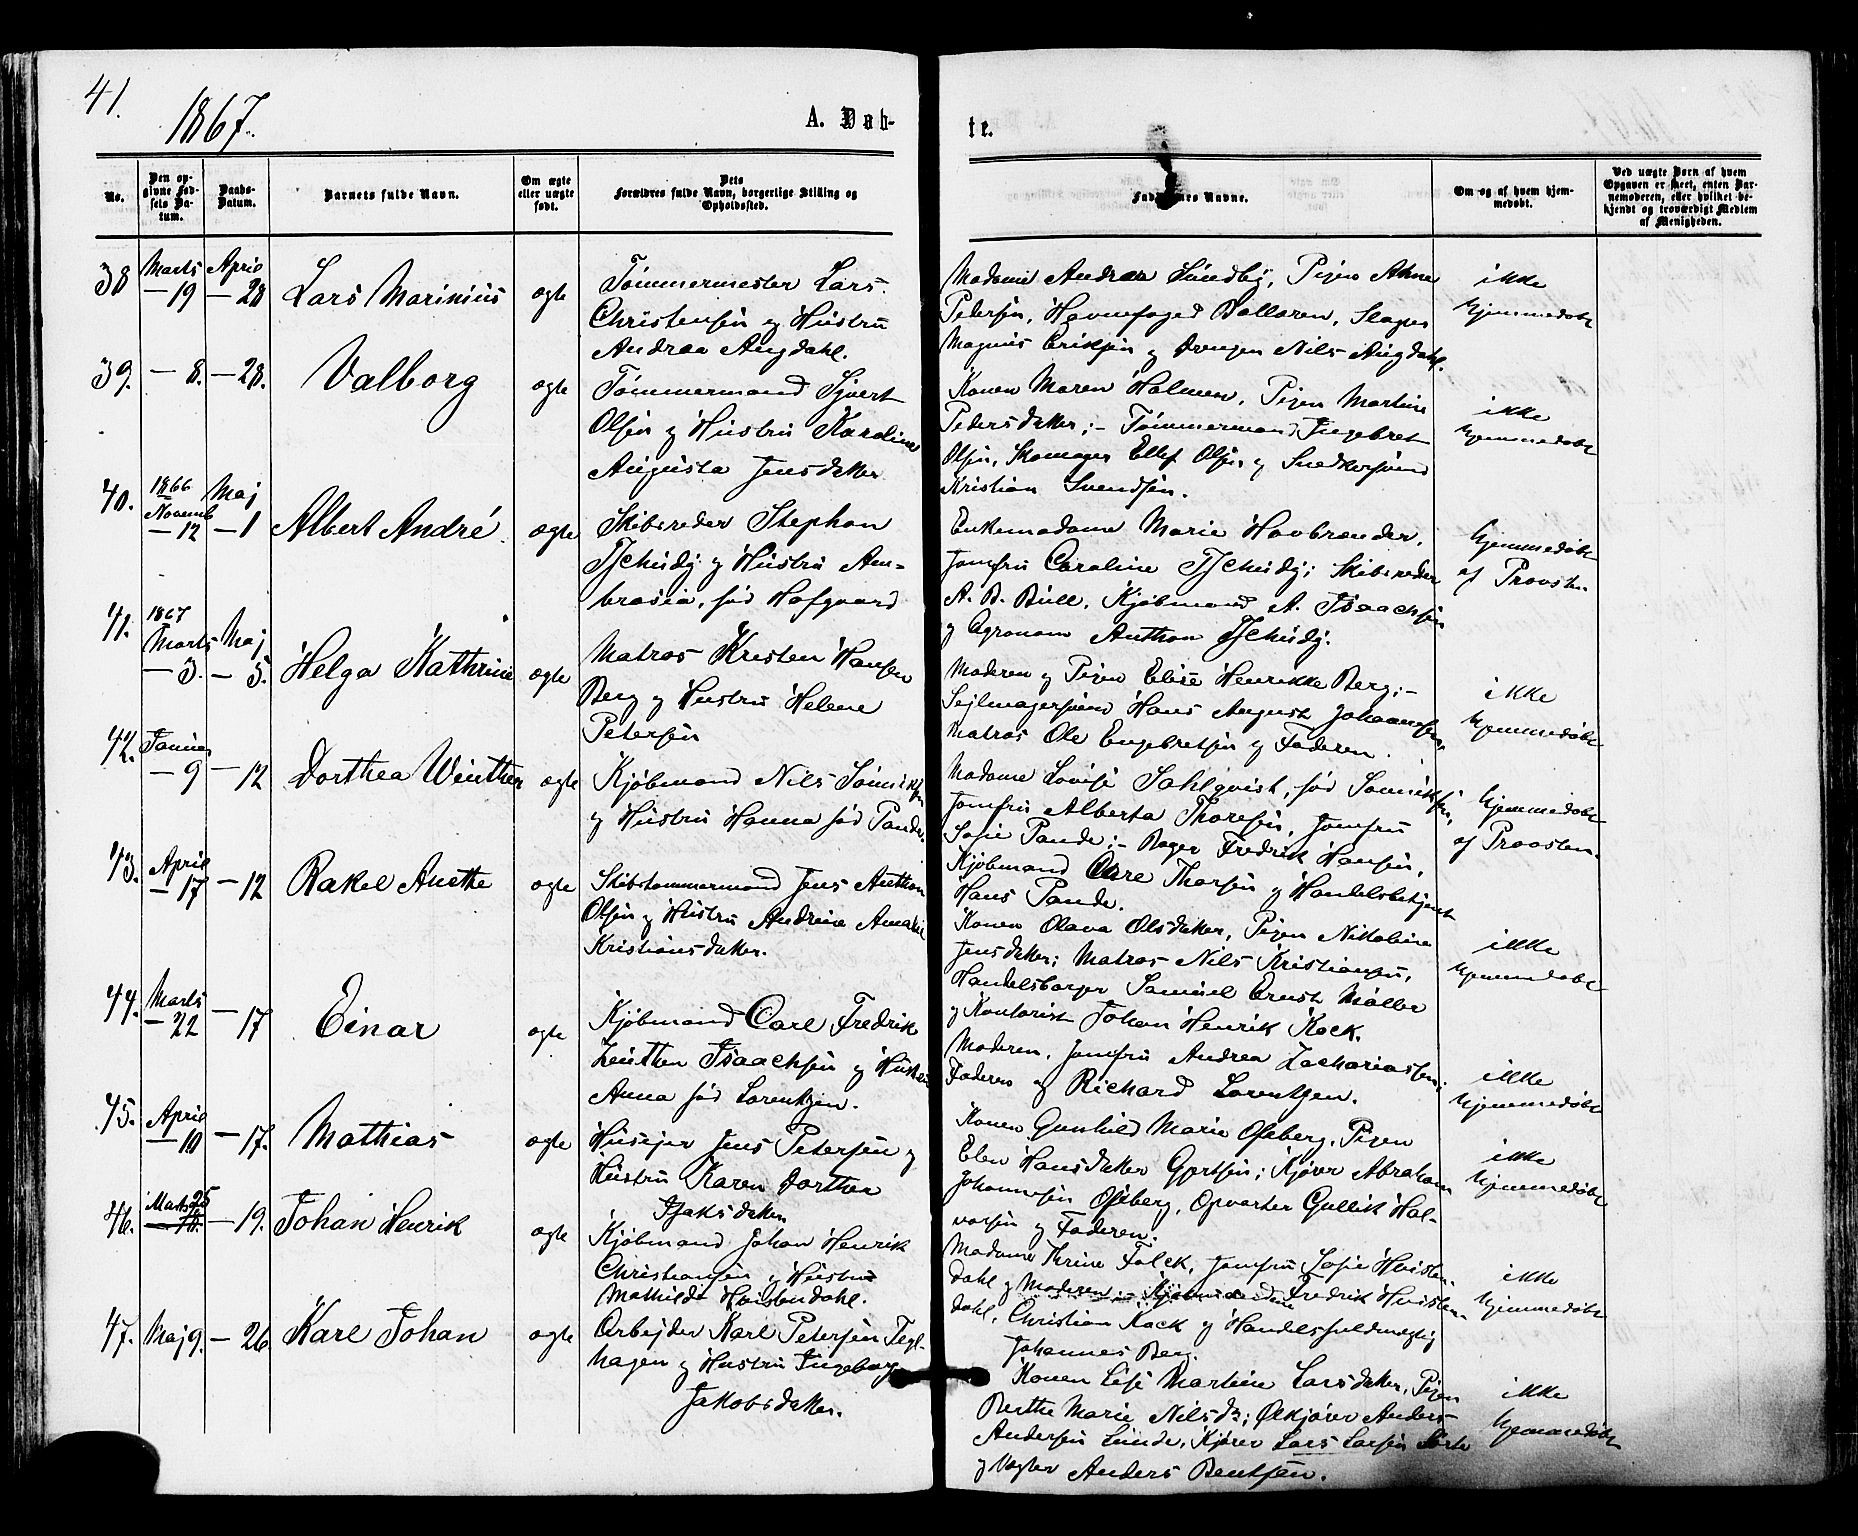 41.
1867.
A. Døb-
te.
No.
Den op-
givne Fød-
sels Da-
tum.
Daabs-
Datum.
Barnets fulde Navn.
Om ægte
eller uægte
født.
Dets
Forældres fulde Navn, borgerlige Stilling og
Opholdssted.
Faddernes Navne.
Om og af hvem hjem-
medøbt.
Ved uægte Børn af hvem
Opgaven er skeet, enten Bar-
nemoderen, eller hvilket be-
kjendt og troværdigt Medlem
af Menigheden.
38 Marts - 19 April - 28 Lars Marinius ægte
Tømmermester Lars
Christensen og Hustru
Andrea Augdahl.
Madame Andrea Sundby, Pigen Anne
Petersen, Havnefoged Ballaren, Slagter
Magnus Eriksen og Drengen Nils Augdahl.
ikke
hjemmedøbt
39. - 8. - 28. Valborg ægte
Tømmermand Sjvert
Olsen og Hustru Karoline
Augusta Jensdatter
Konen Maren Holmen, Pigen Martine
Pedersdatter; - Tømmermand Ingebret
Olsen, Skomager Ellef Olsen og Snedkersvend
Kristian Svendsen.
ikke
hjemmedøbt
40. 1866 Novemb - 12 Maj - 1 Albert André ægte
Skibsreder Stephan
Tschudy og Hustru Am-
brosia, fød Hofgaard
Enkemadame Marie Havbrander,
Jomfru Caroline Tschudy; Skibsreder
A. B. Bull, Kjøbmand A. Isaachsen
og Agronom Anthon Tschudy.
hjemmedøbt
af Provsten.
41. 1867 Marts - 3. Maj - 5. Helga Kathrine ægte
Matros Kristen Hansen
Berg og Hustru Helene
Petersen
Moderen og Pigen Elise Henrikke Berg; -
Sejlmagersvend Hans August Johannesen,
Matros Ole Engebretsen og Faderen.
ikke
hjemmedøbt
42. Januar - 9 - 12 Dorthea Winther ægte
Kjøbmand Nils Sønniksen
og Hustru Hanna fød Pande.
Madame Lovise Sahlqvist, fød Sønniksen,
Jomfru Alberta Thoresen, Jomfru
Sofie Pande; - Bager Fredrik Hansen,
Kjøbmand Carl Thorsen og Handelsbetjent
Hans Pande.
hjemmedøbt
af Provsten.
43. April - 17 - 12 Rakel Anethe ægte
Skibstømmermand Jens Anthon
Olsen og Hustru Andrine Amalie
Kristiansdatter.
Konen Olava Olsdatter, Pigen Nikoline
Jensdatter; Matros Nils Kristiansen,
Handelsborger Samuel Ernst Møller
og Kontorist Johan Henrik Kock.
ikke
hjemmedøbt
44. Marts - 22 - 17 Einar ægte
Kjøbmand Carl Fredrik
Zeuthen Isaachsen og Hustru
Anna fød Lorentzen.
Moderen, Jomfru Andrea Zachariassen;
Faderen og Richard Lorentzen.
ikke
hjemmedøbt
45. April - 10 - 17. Mathias ægte
Husejer Jens Petersen og
Hustru Karen Dorthea
Isaksdatter
Konen Gunhild Marie Ofseberg, Pigen
Elen Hansdatter Gjertsen; Kjører Abraham
Johannesen Ofseberg, Opvarter Gullik Hal-
vorsen og Faderen.
ikke
hjemmedøbt
46. Marts 25 - 19. Johan Henrik ægte
Kjøbmand Johan Henrik
Christiansen og Hustru
Mathilde Hvistendahl.
Madame Thrine Falck, Jomfru Sofie Hvisten-
dahl og Moderen; - Kjøbmændene Fredrik Hvisten-
dahl, Christian Kock og Handelsfuldmægtig
Johannes Berg.
ikke
hjemmedøbt
47. Maj 9. - 26 Karl Johan ægte
Arbejder Karl Petersen Tegl-
hagen og Hustru Ingeborg
Jakobsdatter.
Konen Lise Martine Larsdatter, Pigen
Berthe Marie Nilsd.; Ølkjører Anders
Andersen Lunde, Kjører Lars Larsen
og Vægter Anders Bentsen.
ikke
hjemmedøbt